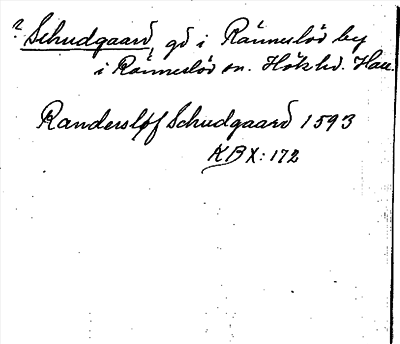 ? Schudgaard, gd i Ränneslöv by
i Ränneslöv sn. Hök hd. Hall.
Randersløf Schudgaard 1593
KB X: 172